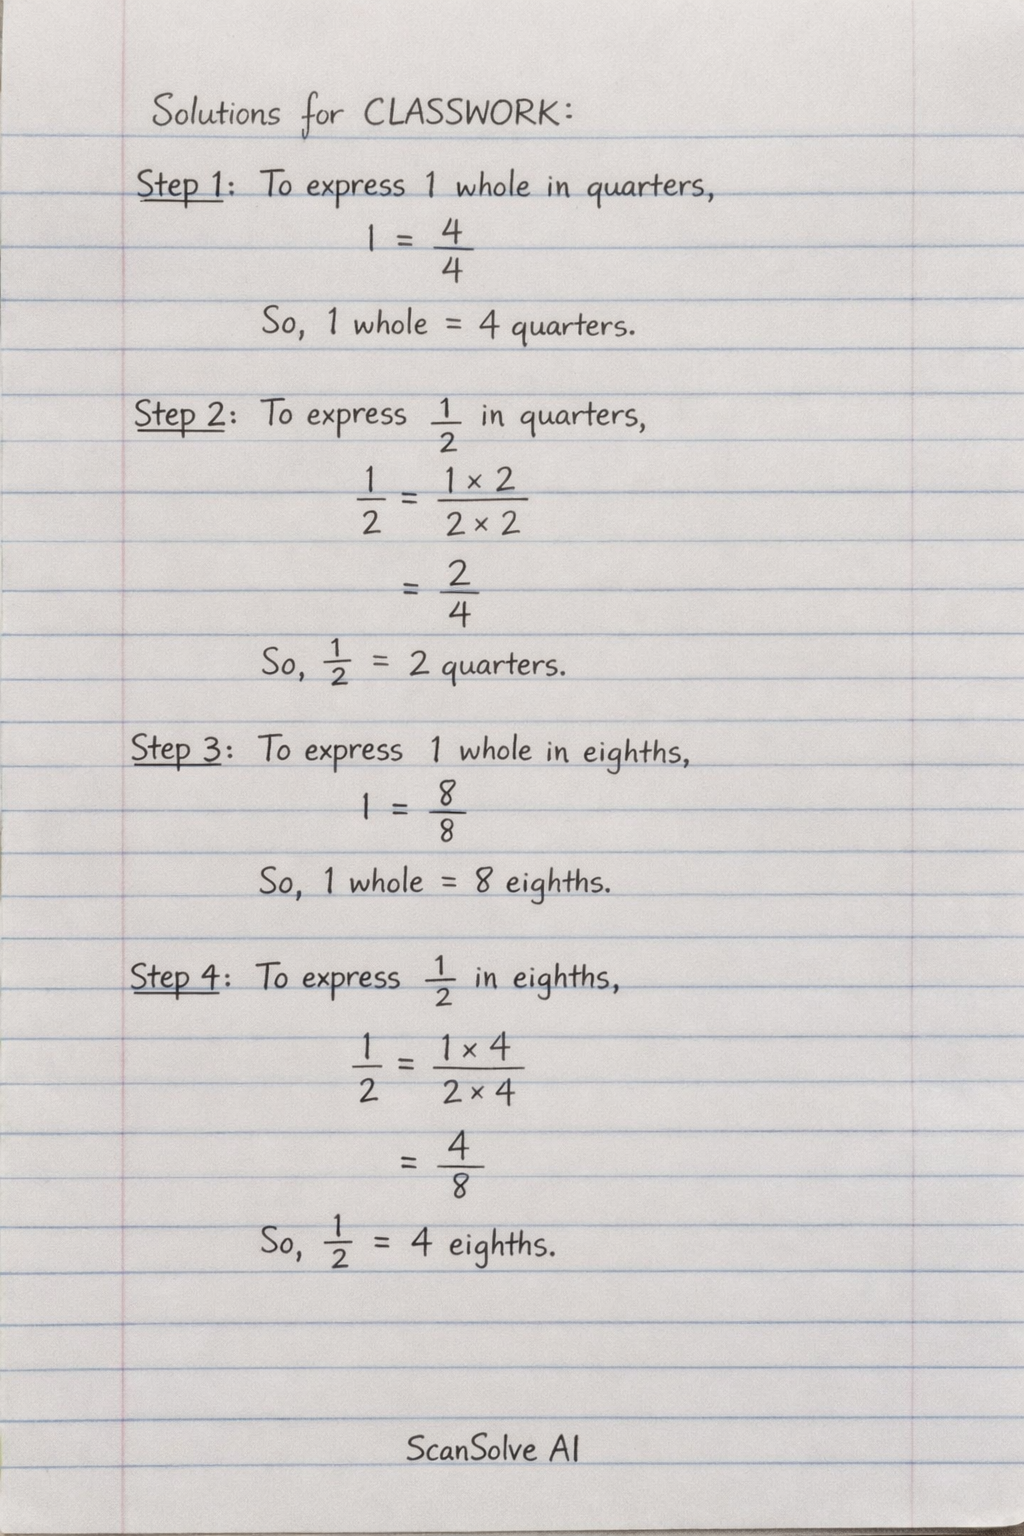 Solutions for CLASSWORK:
Step 1: To express 1 whole in quarters,
1 = 4/4
So, 1 whole = 4 quarters.
Step 2: To express 1/2 in quarters,
1/2 = (1 × 2)/(2 × 2)
= 2/4
So, 1/2 = 2 quarters.
Step 3: To express 1 whole in eighths,
1 = 8/8
So, 1 whole = 8 eighths.
Step 4: To express 1/2 in eighths,
1/2 = (1 × 4)/(2 × 4)
= 4/8
So, 1/2 = 4 eighths.
ScanSolve AI